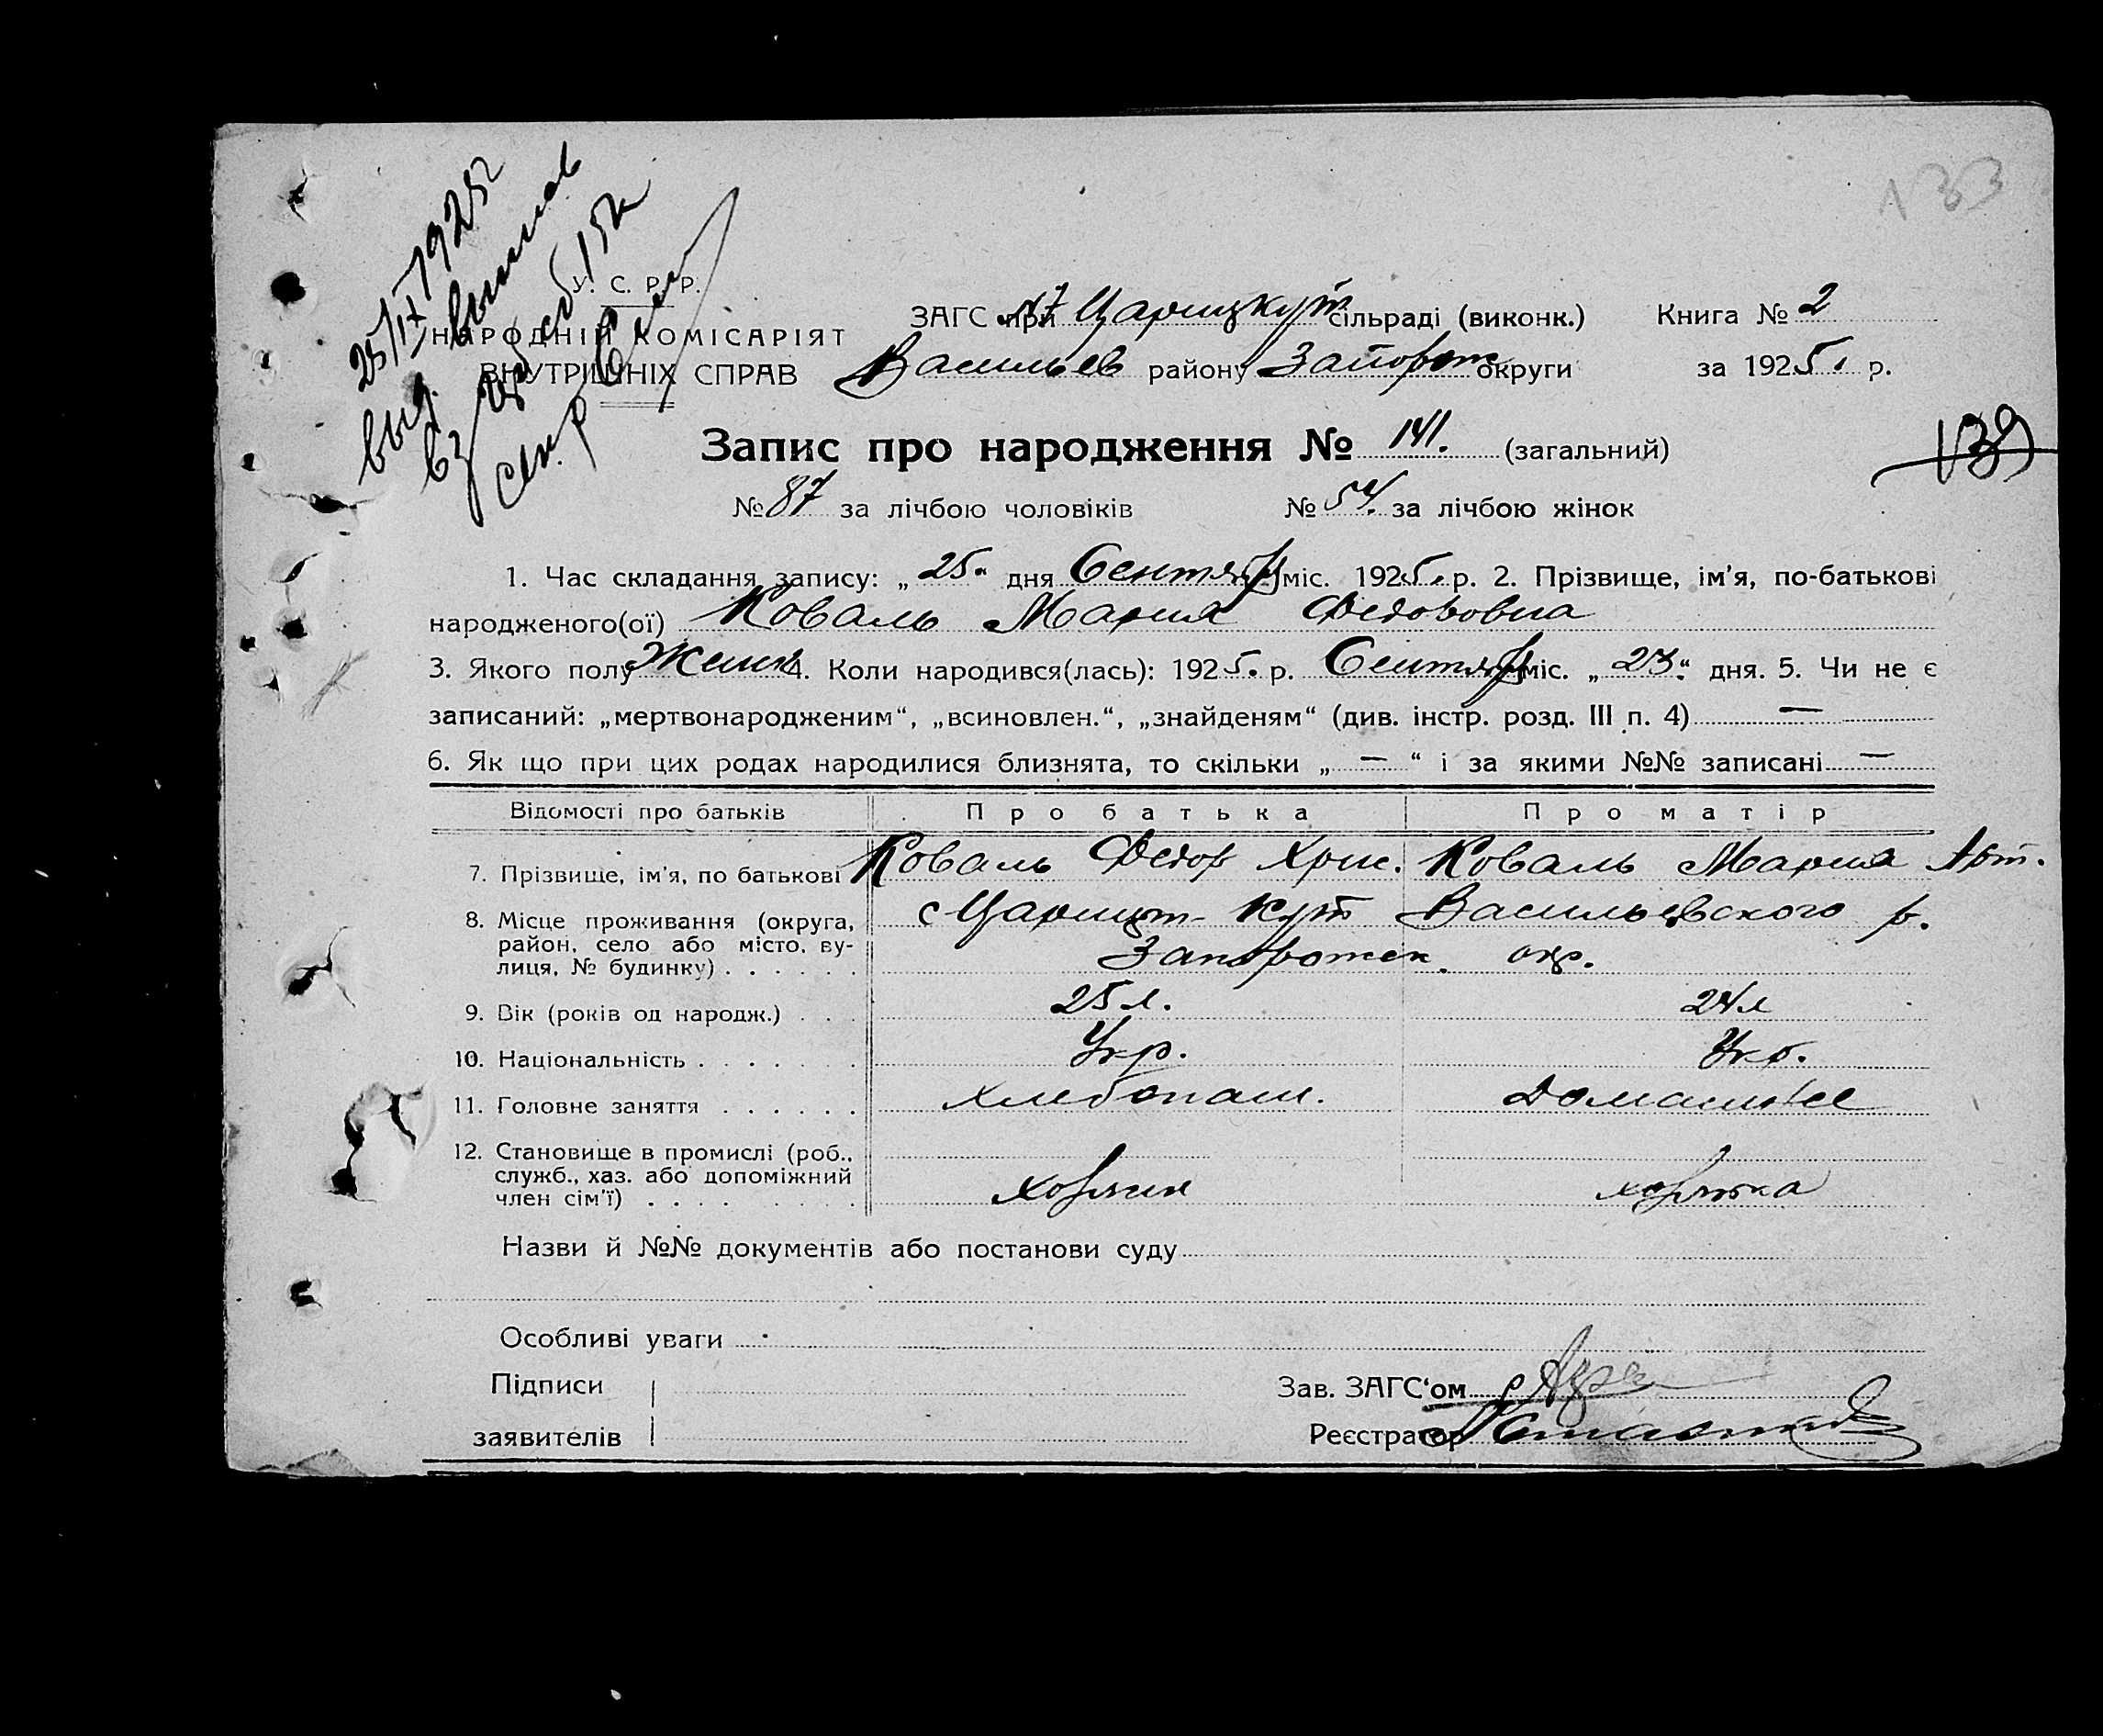 133
25/IX 1925г
выд. выпись
вз сбор 15к
Секр
У. С. Р. Р.
НАРОДНІЙ КОМІСАРІЯТ
ВНУТРІШНІХ СПРАВ
ЗАГС при Царицкут сільраді (виконк.) Книга № 2
Васильев району Запорож округи за 1925. р.
Запис про народження № 141. (загальний)
139
№ 87 за лічбою чоловіків № 54. за лічбою жінок
1. Час складання запису: „25“ дня Сентяб міс. 1925. р. 2. Прізвище, ім'я, по-батькові
народженого(ої) Коваль Мария Федоровна
3. Якого полу Женск 4. Коли народився(лась): 1925. р. Сентяб міс. „23“ дня. 5. Чи не є
записаний: „мертвонародженим“, „всиновлен.“, „знайденям“ (див. інстр. розд. III п. 4) —
6. Як що при цих родах народилися близнята, то скільки „ — “ і за якими №№ записані —
Відомості про батьків Про батька Про матір
7. Прізвище, ім'я, по батькові Коваль Федор Хрис. Коваль Мария Арт.
8. Місце проживання (округа, район, село або місто, ву-лиця, № будинку) с Царицт-Кут Васильевского р.
Запорожск. окр.
9. Вік (років од народж.) 25 л. 24 л
10. Національність Укр. Укр.
11. Головне заняття хлебопаш. Домашнее
12. Становище в промислі (роб., служб., хаз. або допоміжний член сім'ї) хозяин хозяйка
Назви й №№ документів або постанови суду
Особливі уваги
Підписи Зав. ЗАГС'ом
заявителів Реєстратор